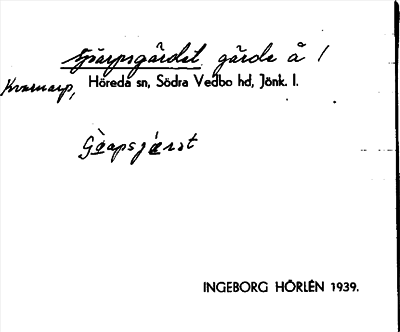 Gjäapsgärdet gärde å 1
Kvarnarp, Höreda sn, Södra Vedbo hd, Jönk. l.
Gæapsjærat
INGEBORG HÖRLÉN 1939.